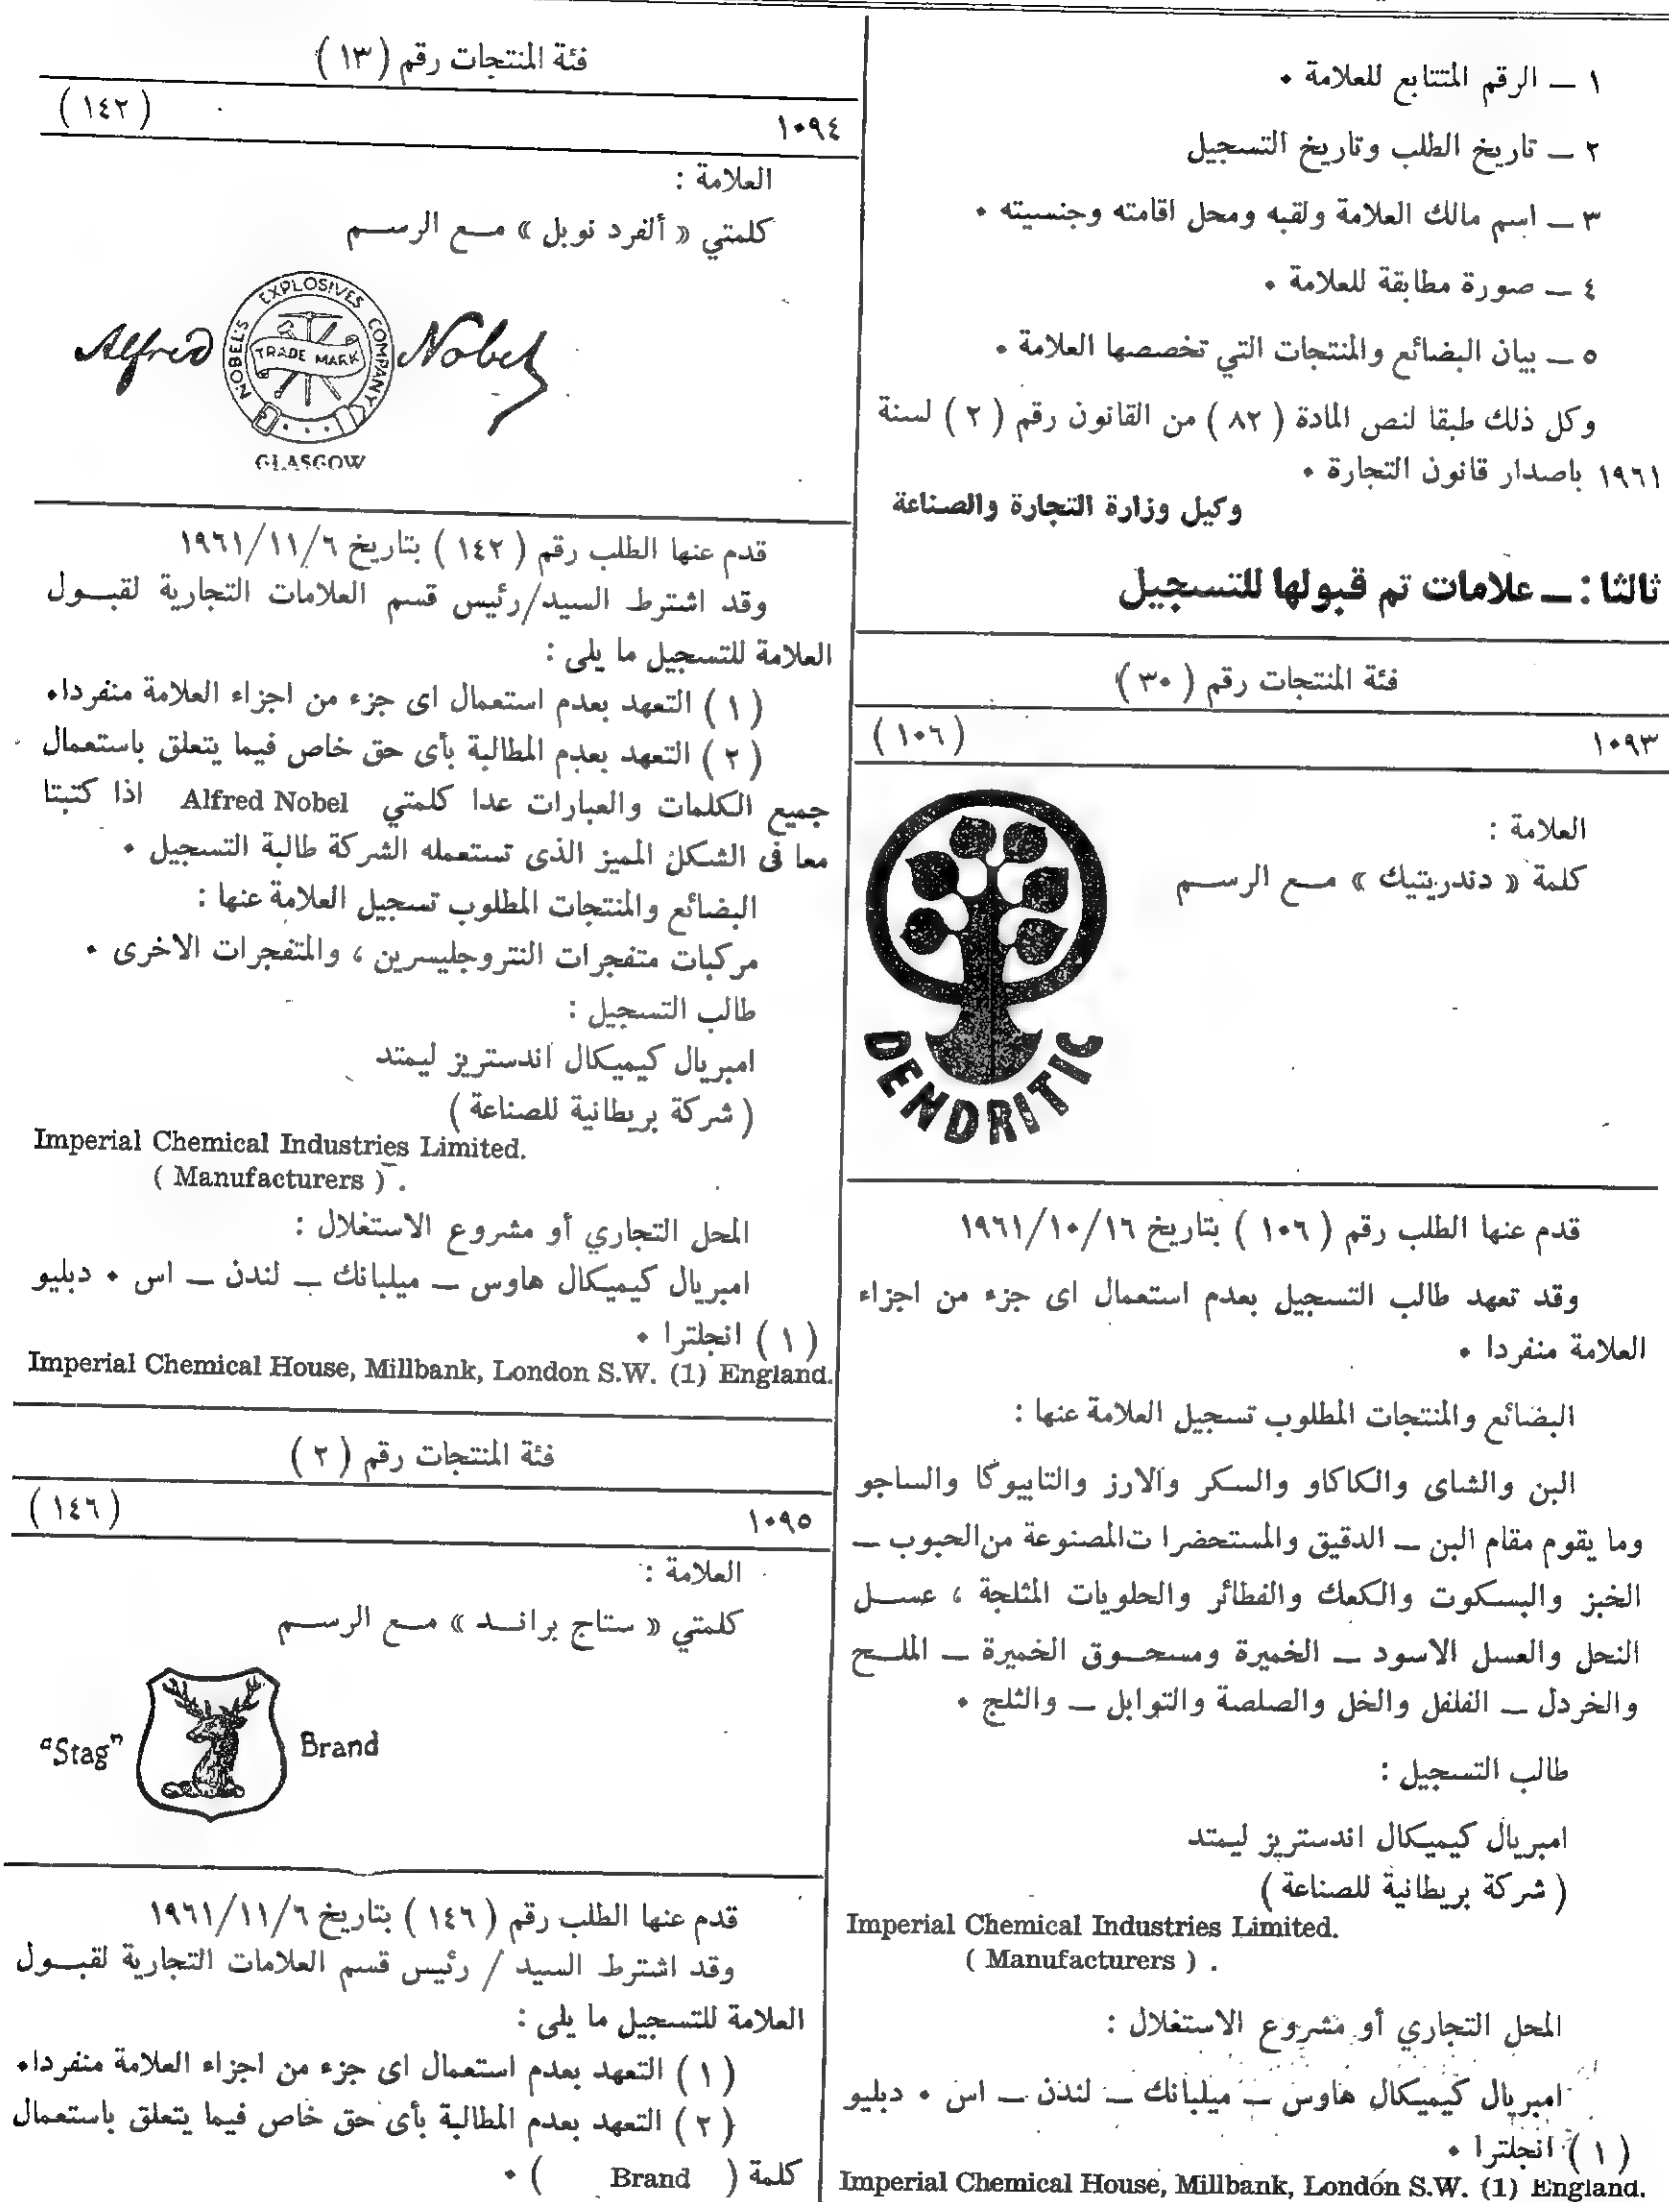 ١ ــ الرقم المتتابع للعلامة ٠
٢ ــ تاريخ الطلب وتاريخ التسجيل
٣ ــ اسم مالك العلامة ولقبه ومحل اقامته وجنسيته ٠
٤ ــ صورة مطابقة للعلامة ٠
٥ ــ بيان البضائع والمنتجات التي تخصصها العلامة ٠
وكل ذلك طبقا لنص المادة ( ٨٢ ) من القانون رقم ( ٢ ) لسنة
١٩٦١ باصدار قانون التجارة ٠
وكيل وزارة التجارة والصناعة
ثالثا : ــ علامات تم قبولها للتسجيل
فئة المنتجات رقم ( ٣٠ )
١٠٩٣ ( ١٠٦ )
العلامة :
كلمة « دندريتيك » مــع الرســم
DENDRITIC
قدم عنها الطلب رقم ( ١٠٦ ) بتاريخ ١٩٦١/١٠/١٦
وقد تعهد طالب التسجيل بعدم استعمال اى جزء من اجزاء
العلامة منفردا ٠
البضائع والمنتجات المطلوب تسجيل العلامة عنها :
البن والشاى والكاكاو والسكر والارز والتابيوكا والساجو
وما يقوم مقام البن ــ الدقيق والمستحضرا تالمصنوعة من الحبوب ــ
الخبز والبسكوت والكعك والفطائر والحلويات المثلجة ، عســل
النحل والعسل الاسود ــ الخميرة ومسحــوق الخميرة ــ الملــح
والخردل ــ الفلفل والخل والصلصة والتوابل ــ والثلج ٠
طالب التسجيل :
امبريال كيميكال اندستريز ليمتد
( شركة بريطانية للصناعة )
Imperial Chemical Industries Limited.
( Manufacturers ) .
المحل التجاري أو مشروع الاستغلال :
امبريال كيميكال هاوس ــ ميلبانك ــ لندن ــ اس ٠ دبليو
( ١ ) انجلترا ٠
Imperial Chemical House, Millbank, London S.W. (1) England.
فئة المنتجات رقم ( ١٣ )
١٠٩٤ ( ١٤٢ )
العلامة :
كلمتي « ألفرد نوبل » مــع الرســم
Alfred Nobel
NOBEL'S EXPLOSIVES COMPANY
TRADE MARK
GLASGOW
قدم عنها الطلب رقم ( ١٤٢ ) بتاريخ ١٩٦١/١١/٦
وقد اشترط السيد/رئيس قسم العلامات التجارية لقبــول
العلامة للتسجيل ما يلى :
( ١ ) التعهد بعدم استعمال اى جزء من اجزاء العلامة منفردا٠
( ٢ ) التعهد بعدم المطالبة بأى حق خاص فيما يتعلق باستعمال
جميع الكلمات والعبارات عدا كلمتي Alfred Nobel اذا كتبتا
معا فى الشكل المميز الذى تستعمله الشركة طالبة التسجيل ٠
البضائع والمنتجات المطلوب تسجيل العلامة عنها :
مركبات متفجرات النتروجليسرين ، والمتفجرات الاخرى ٠
طالب التسجيل :
امبريال كيميكال اندستريز ليمتد
( شركة بريطانية للصناعة )
Imperial Chemical Industries Limited.
( Manufacturers ) .
المحل التجاري أو مشروع الاستغلال :
امبريال كيميكال هاوس ــ ميلبانك ــ لندن ــ اس ٠ دبليو
( ١ ) انجلترا ٠
Imperial Chemical House, Millbank, London S.W. (1) England.
فئة المنتجات رقم ( ٢ )
١٠٩٥ ( ١٤٦ )
العلامة :
كلمتي « ستاج برانــد » مــع الرســم
"Stag" Brand
قدم عنها الطلب رقم ( ١٤٦ ) بتاريخ ١٩٦١/١١/٦
وقد اشترط السيد / رئيس قسم العلامات التجارية لقبــول
العلامة للتسجيل ما يلى :
( ١ ) التعهد بعدم استعمال اى جزء من اجزاء العلامة منفردا٠
( ٢ ) التعهد بعدم المطالبة بأى حق خاص فيما يتعلق باستعمال
كلمة ( Brand ) ٠